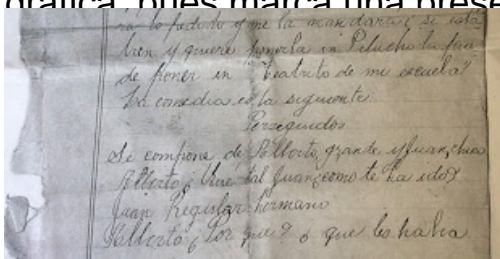 gráfica, pues marca una prese
lo me la mandara, si está
bien y quiere ponerla in Pelucho la
de poner in "Teatrito de mi escuela"
La comedia es la siguiente
Perseguidos
Se compone de Alberto, grande y Juan, chico
Alberto ¿Que tal Juan como te ha ido?
Juan Regular hermano
Alberto ¿Por que? o que les habia